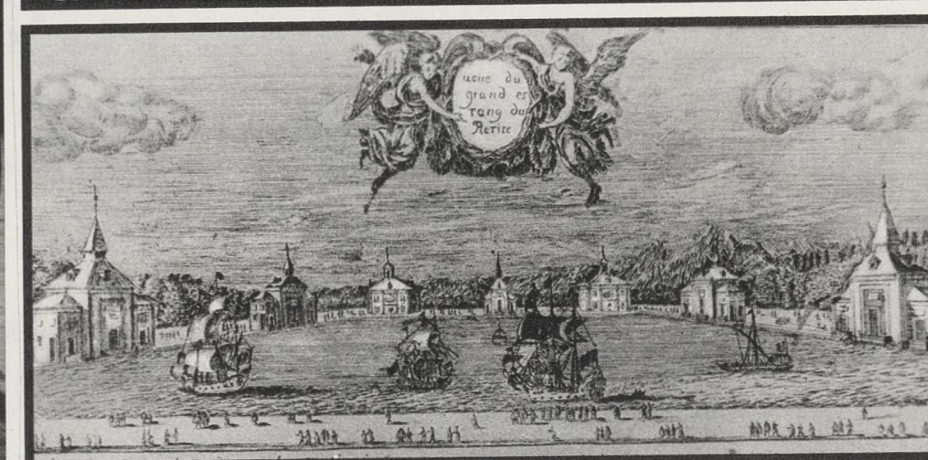 ueue du
grand es
tang du
Retire